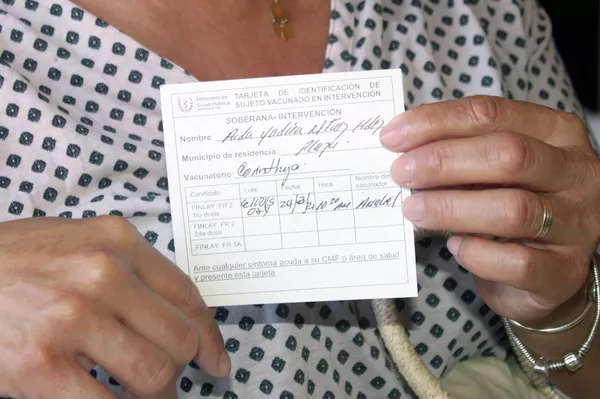 Ministerio de
Salud Pública
TARJETA DE IDENTIFICACIÓN DE
SUJETO VACUNADO EN INTERVENCIÓN
SOBERANA- INTERVENCIÓN
Nombre:
Municipio de residencia:
Vacunatorio: Corinthya
Candidato Lote Fecha Hora Nombre del vacunador
FINLAY FR 2 1ra dosis 24/ 10 30 am
FINLAY FR 2 2da dosis
FINLAY FR 1A
Ante cualquier síntoma acuda a su CMF o área de salud
y presente esta tarjeta